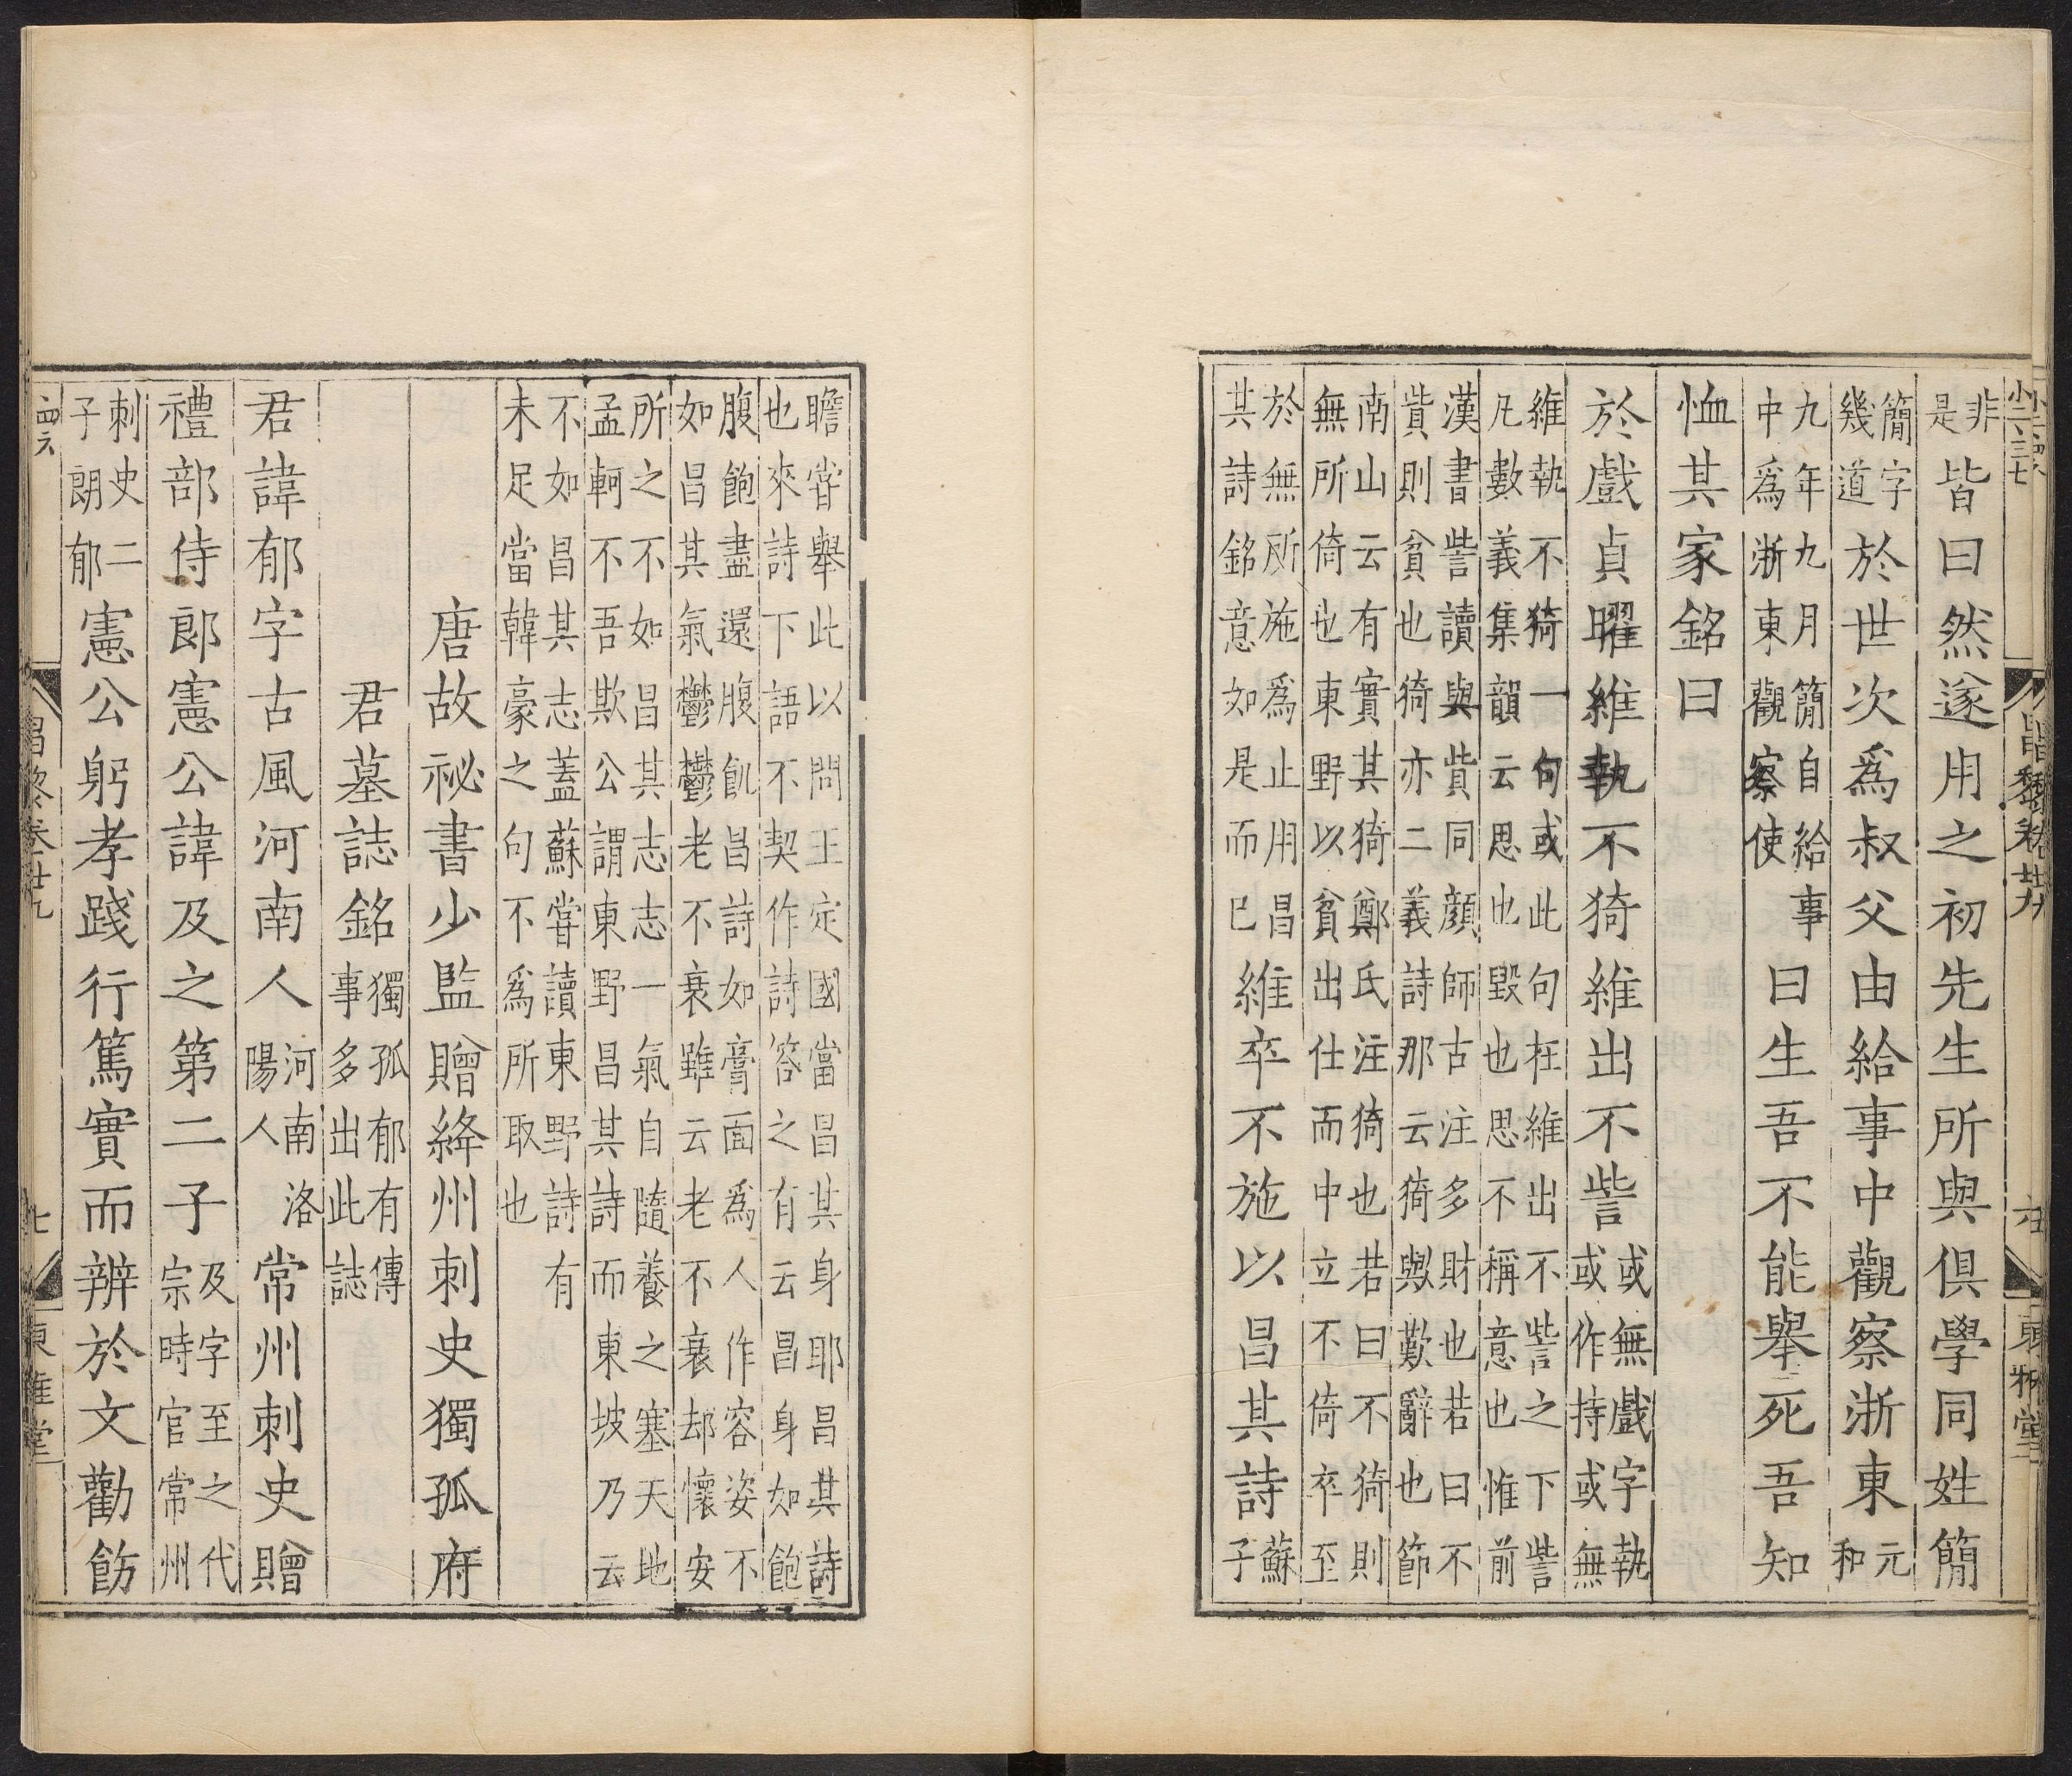 非是皆曰然遂用之初先生所與俱學同姓簡
簡字幾道於世次爲叔父由給事中觀察浙東元和
九年九月簡自給事中爲浙東觀察使曰生吾不能舉死吾知
恤其家銘曰
於戲貞曜維執不猗維出不訾或無戲字執或作持或無
維執不猗一句或此句在維出不訾之下訾
凡數義集韻云思也毀也思不稱意也惟前
漢書訾讀與貲同顔師古注多財也若曰不
貲則貧也猗亦二義詩那云猗與歎辭也節
南山云有實其猗鄭氏注猗也若曰不猗則
無所倚也東野以貧出仕而中立不倚卒至
於無所施爲止用昌其詩銘意如是而已維卒不施以昌其詩蘇子
瞻嘗舉此以問王定國當昌其身耶昌其詩
也來詩下語不契作詩答之有云昌身如飽
腹飽盡還腹飢昌詩如膏面爲人作容姿不
如昌其氣鬱鬱老不衰雖云老不衰却懷安
所之不如昌其志志一氣自隨養之塞天地
孟軻不吾欺公謂東野昌其詩而東坡乃云
不如昌其志蓋蘇嘗讀東野詩有
未足當韓豪之句不爲所取也
唐故祕書少監贈絳州刺史獨孤府
君墓誌銘獨孤郁有傳事多出此誌
君諱郁字古風河南人河南洛陽人常州刺史贈
禮部侍郎憲公諱及之第二子及字至之代宗時官常州
刺史二子朗郁憲公躬孝踐行篤實而辨於文勸飭
昌黎卷廿九
七
東雅堂